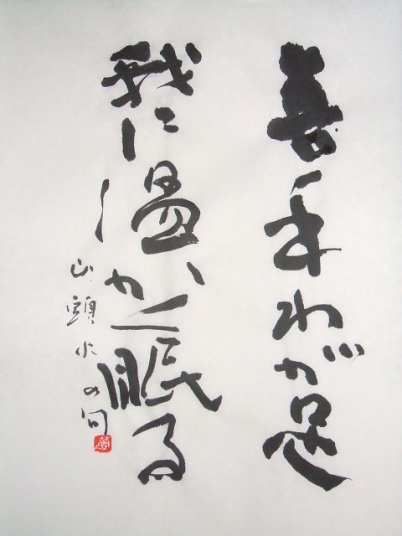 手わが足
我に温かく眠る
山頭火の句